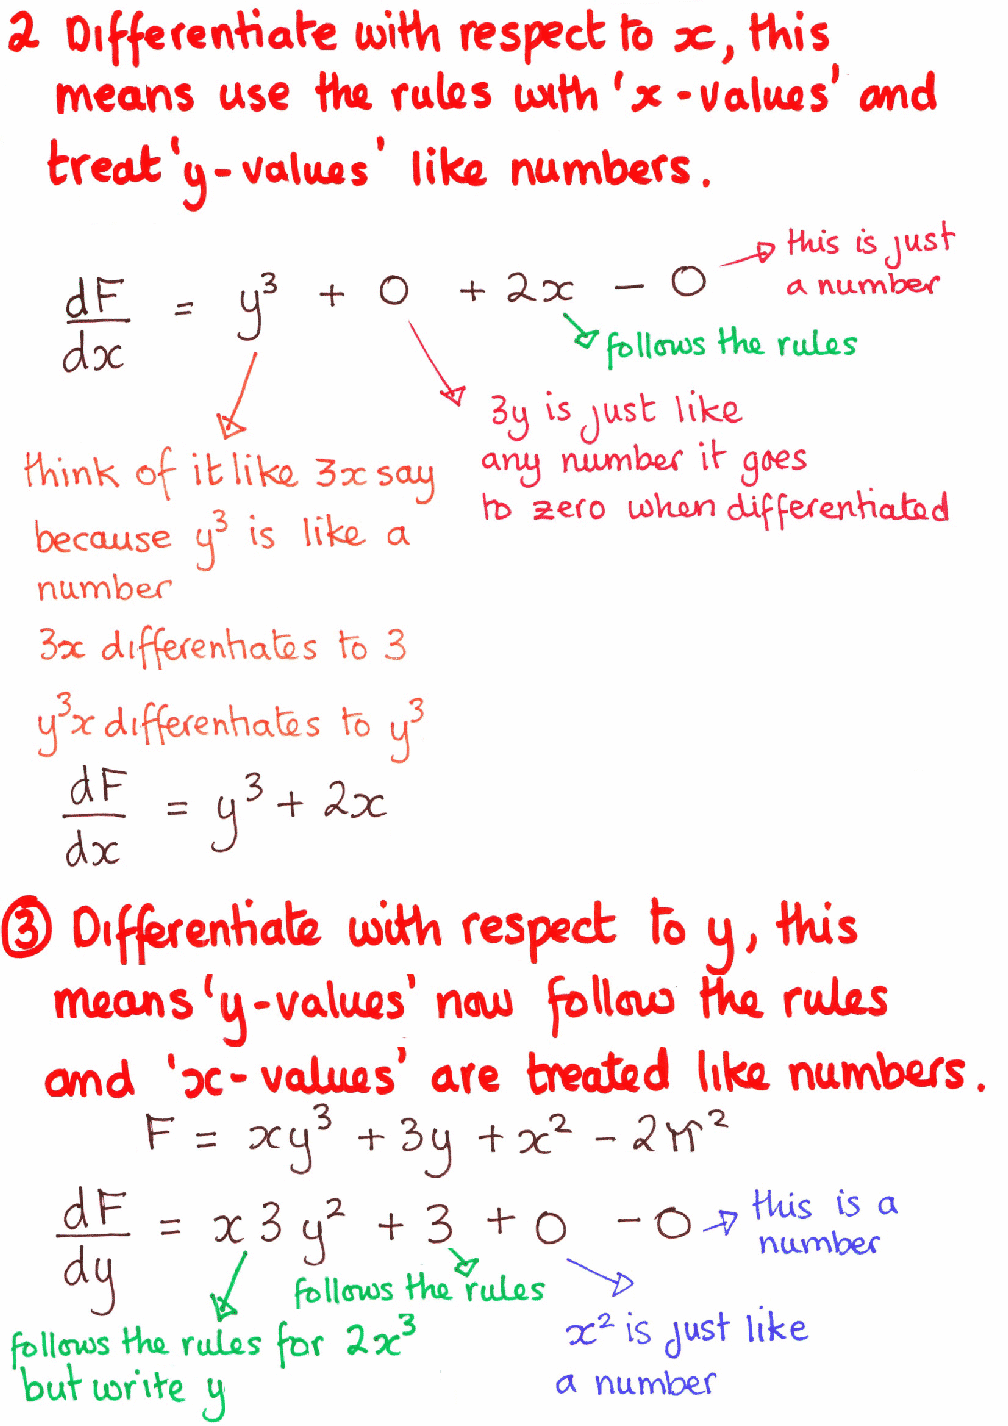 2 Differentiate with respect to x, this
means use the rules with 'x-values' and
treat 'y-values' like numbers.
dF/dx = y³ + 0 + 2x - 0
this is just
a number
follows the rules
3y is just like
any number it goes
to zero when differentiated
think of it like 3x say
because y³ is like a
number
3x differentiates to 3
y³x differentiates to y³
dF/dx = y³ + 2x
③ Differentiate with respect to y, this
means 'y-values' now follow the rules
and 'x-values' are treated like numbers.
F = xy³ + 3y + x² - 2π²
dF/dy = x3y² + 3 + 0 - 0
this is a
number
follows the rules
follows the rules for 2x³
but write y
x² is just like
a number